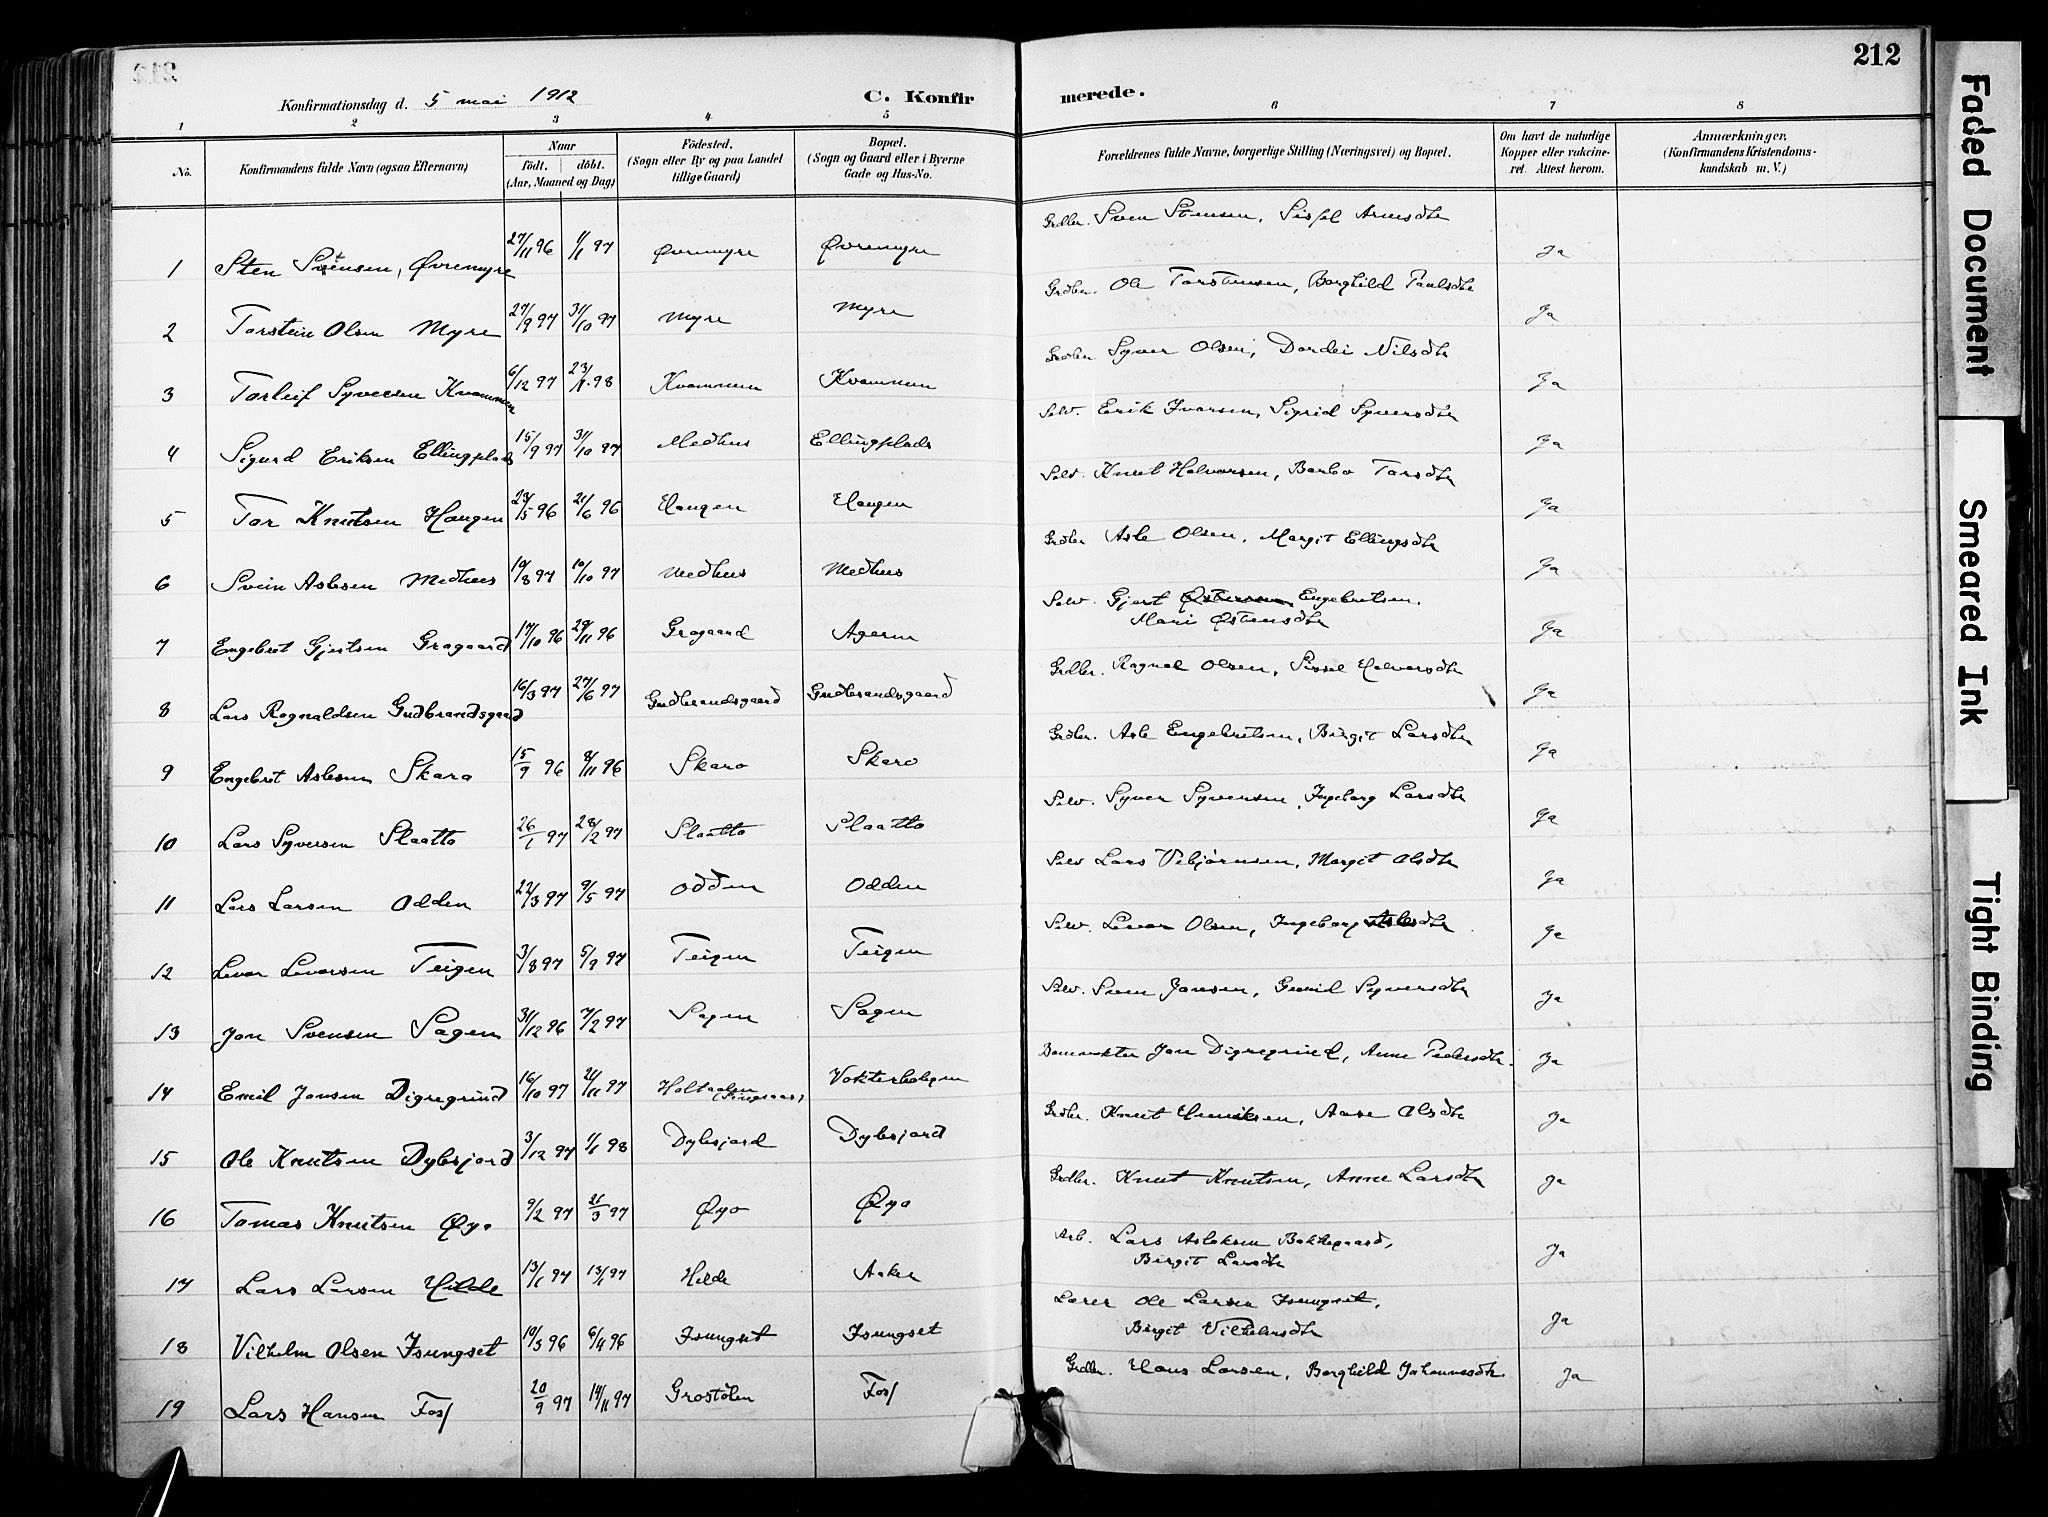 212
Konfirmationsdag d. 5 mai 1912
C. Konfirmerede.
1 2 3 4 5 6 7 8
No.
Konfirmandens fulde Navn (ogsaa Efternavn)
Naar
födt. döbt.
(Aar, Maaned og Dag)
Födested.
(Sogn eller By og paa Landet
tillige Gaard)
Bopæl.
(Sogn og Gaard eller i Byerne
Gade og Hus-No.
Forældrenes fulde Navne, borgerlige Stilling (Næringsvei) og Bopæl.
Om havt de naturlige
Kopper eller vakcine-
ret. Attest herom.
Anmærkninger,
(Konfirmandens Kristendoms-
kundskab m. V.)
1 Sten Svensen, Øvremyre 27/11 96 1/1 97 Øvremyre Øvremyre Grdbr. Sven Stensen, Sissel Arnesdtr Ja
2 Torstein Olsen Myre 27/9 97 31/10 97 Myre Myre Grdbr. Ole Torstensen, Borghild Paulsdtr Ja
3 Torleif Syversen Kvammen 6/12 97 23/1 98 Kvammen Kvammen Grdbr Syver Olsen, Dordei Nilsdtr Ja
4 Sigurd Eriksen Ellingplads 15/9 97 31/10 97 Medhus Ellingplads Selv. Erik Ivarsen, Sigrid Syversdtr Ja
5 Tor Knutsen Haugen 23/5 96 21/6 96 Haugen Haugen Selv. Knut Halvorsen, Barbo Torsdtr Ja
6 Svein Aslesen Medhus 19/8 97 10/10 97 Medhus Medhus Grdbr Asle Olsen, Margit Ellingsdtr Ja
7 Engebret Gjertsen Gragaard 17/10 96 29/11 96 Gragaard Ageren Selv. Gjert Engebretsen,
Mari Østensdtr Ja
8 Lars Ragnaldsen Gudbrandsgaard 16/3 97 27/6 97 Gudbrandsgaard Gudbrandsgaard Grdbr. Ragnal Olsen, Sissel Halvorsdtr Ja
9 Engebret Aslesen Skaro 15/9 96 8/11 96 Skaro Skaro Grdbr. Asle Engebretsen, Birgit Larsdtr Ja
10 Lars Syversen Slaatto 26/1 97 28/2 97 Slaatto Slaatto Selv. Syver Syversen, Ingeborg Larsdtr Ja
11 Lars Larsen Odden 22/3 97 9/5 97 Odden Odden Selv Lars Vebjørnsen, Margit Olsdtr Ja
12 Levor Levorsen Teigen 3/8 97 5/9 97 Teigen Teigen Selv. Levor Olsen, Ingeborg Aslesdtr Ja
13 Jon Svensen Sagen 31/12 96 7/2 97 Sagen Sagen Selv. Sven Jonsen, Gunild Syversdtr Ja
14 Emil Jonsen Digregrind 16/10 97 21/11 97 Holtaalen (Singsaas) Vokterboligen Banevokter Jon Digregrind, Anne Pedersdtr. Ja
15 Ole Knutsen Dybsjord 3/12 97 1/1 98 Dybsjord Dybsjord Grdbr. Knut Henriksen, Aase Olsdtr Ja
16 Tomas Knutsen Øyo 9/2 97 21/3 97 Øyo Øyo Grdbr. Knut Knutsen, Anne Larsdtr Ja
17 Lars Larsen Hilde 13/1 97 13/1 97 Hilde Aaker Arb. Lars Aslaksen Bakkegaard,
Birgit Larsdtr Ja
18 Vilhelm Olsen Isungset 10/3 96 6/4 96 Isungset Isungset Lærer Ole Larsen Isungset,
Birgit Vilhelmsdtr Ja
19 Lars Hansen Foss 20/9 97 14/11 97 Grostølen Foss Grdbr. Hans Larsen, Borghild Johannesdtr. Ja
Faded Document
Smeared Ink
Tight Binding